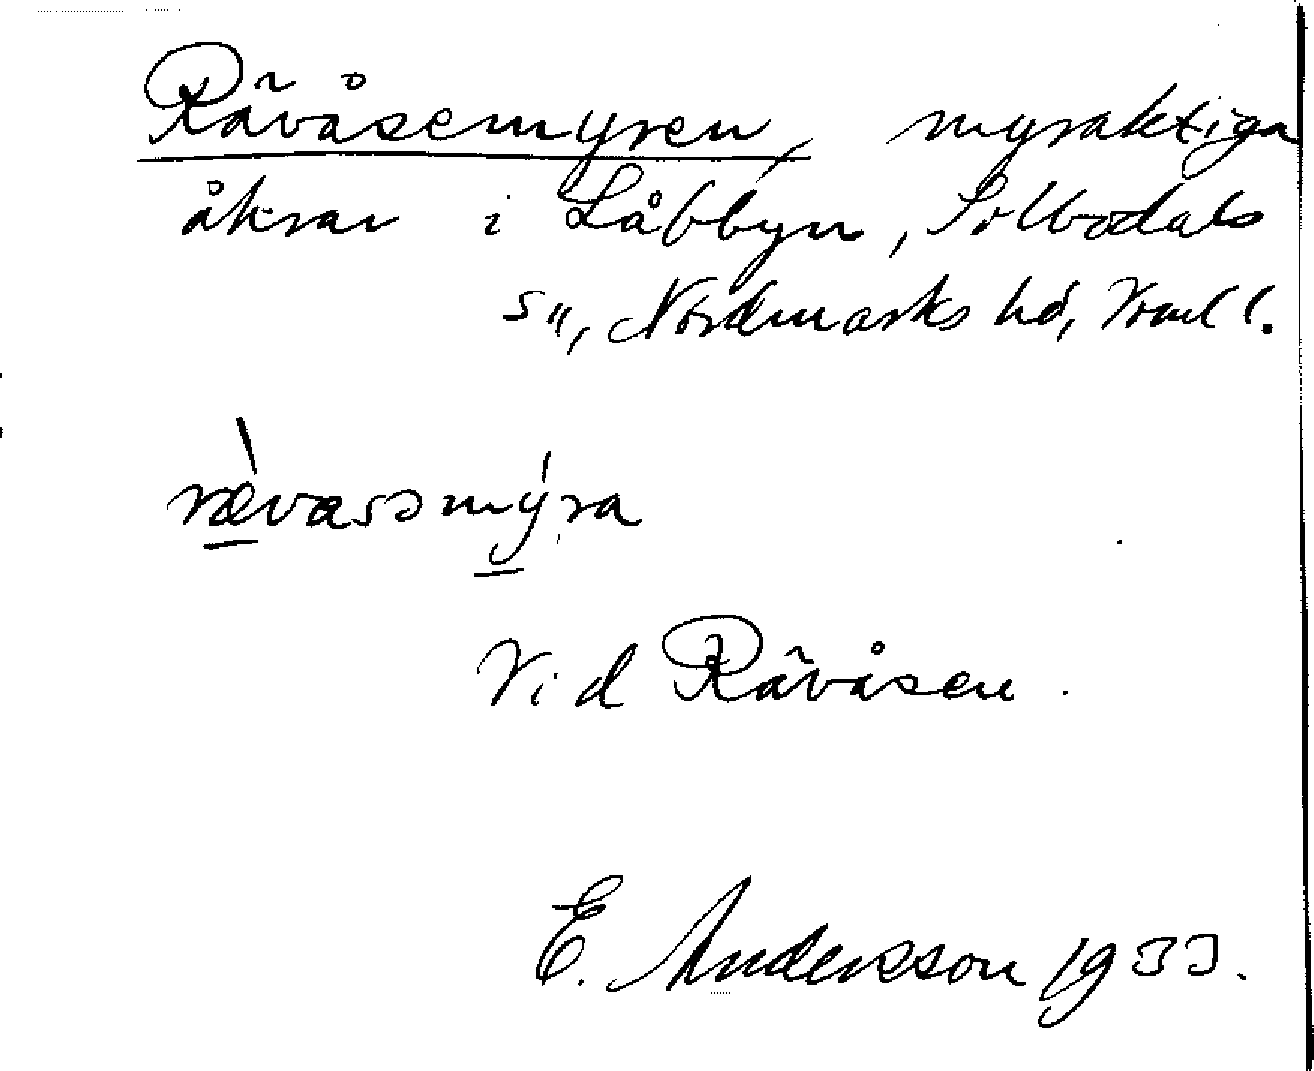 Rävåsemyren, myraktiga
åkrar i Låbbyn, Silbodals
sn, Nordmarks hd, Vrml l.
rævassmyra
Vid Råvåsen.
E. Andersson 1933.